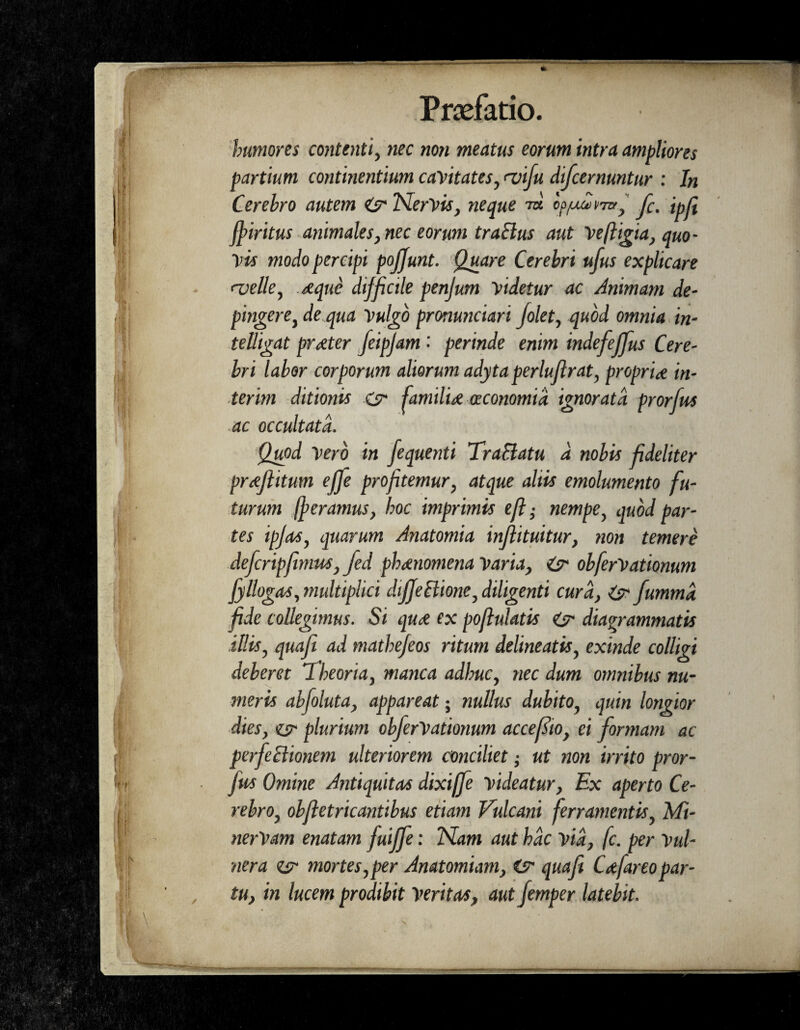 Præfatio.
humores contenti, nec non meatus eorum intra ampliores
partium continentium cavitates, visu discernuntur : In
Cerebro autem & Nervis, neque τὰ ὁρμῶντα, sc. ipsi
spiritus animales, nec eorum tractus aut vestigia, quo-
vis modo percipi possunt. Quare Cerebri usus explicare
velle, æque difficile pensum videtur ac Animam de-
pingere, de qua vulgò pronunciari solet, quòd omnia in-
telligat præter seipsam : perinde enim indefessus Cere-
bri labor corporum aliorum adyta perlustrat, propriæ in-
terim ditionis & familiæ œconomiâ ignoratâ prorsus
ac occultatâ.
Quod verò in sequenti Tractatu à nobis fideliter
præstitum esse profitemur, atque aliis emolumento fu-
turum speramus, hoc imprimis est; nempe, quòd par-
tes ipsas, quarum Anatomia instituitur, non temerè
descripsimus, sed phænomena varia, & observationum
syllogas, multiplici dissectione, diligenti curâ, & summâ
fide collegimus. Si quæ ex postulatis & diagrammatis
illis, quasi ad matheseos ritum delineatis, exinde colligi
deberet Theoria, manca adhuc, nec dum omnibus nu-
meris absoluta, appareat; nullus dubito, quin longior
dies, & plurium observationum accessio, ei formam ac
perfectionem ulteriorem conciliet; ut non irrito pror-
sus Omine Antiquitas dixisse videatur, Ex aperto Ce-
rebro, obstetricantibus etiam Vulcani ferramentis, Mi-
nervam enatam fuisse : Nam aut hâc viâ, sc. per vul-
nera & mortes, per Anatomiam, & quasi Cæsareo par-
tu, in lucem prodibit veritas, aut semper latebit.